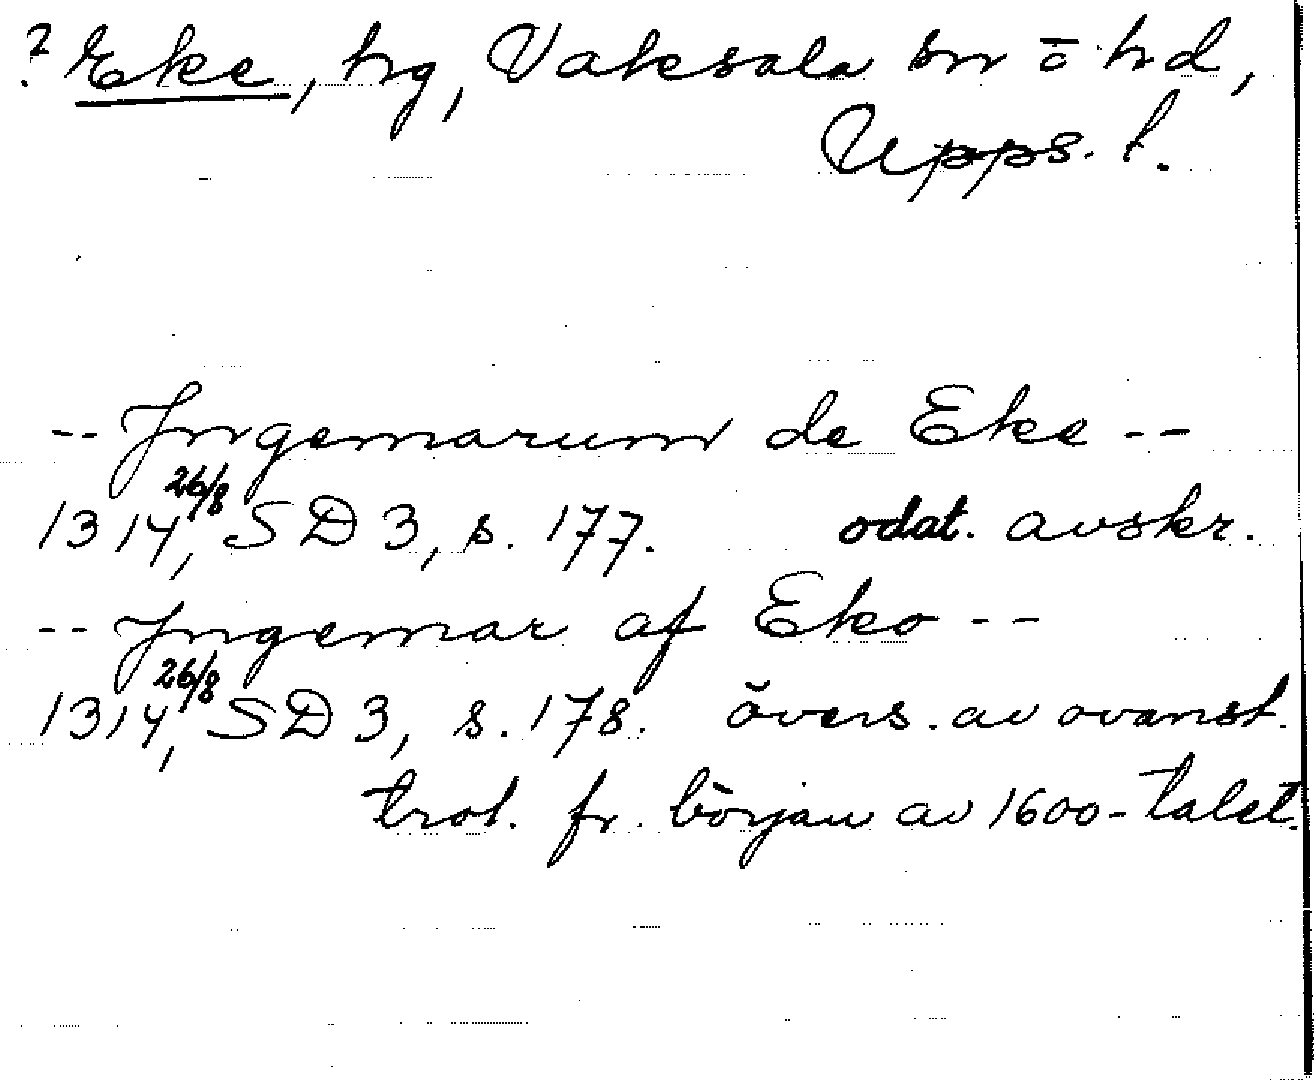 ? Eke, hg, Vaksala sn o hd,
Upps. l.
-- Ingemarum de Eke --
1314 26/8, SD 3, s. 177. odat. avskr.
-- Ingemar af Eko --
1314 26/8, SD 3, s. 178. övers. av ovanst.
trol. fr. början av 1600-talet.